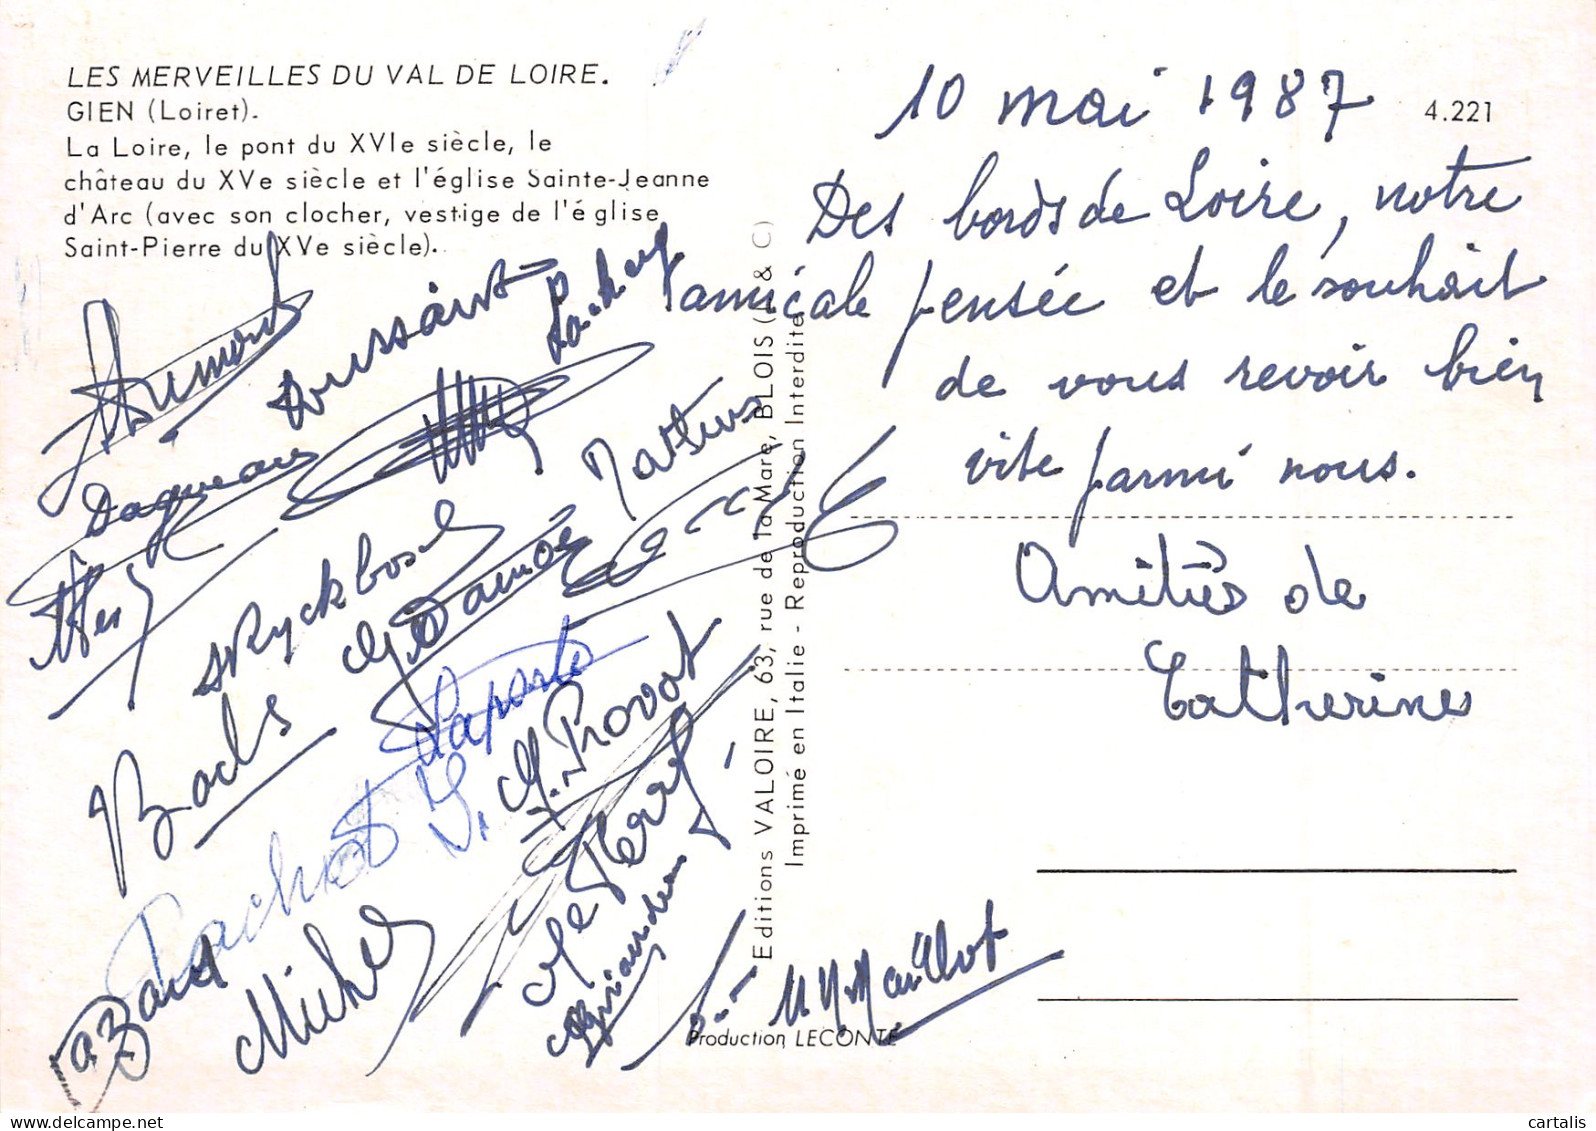 LES MERVEILLES DU VAL DE LOIRE.
GIEN (Loiret).
La Loire, le pont du XVIe siècle, le
château du XVe siècle et l'église Sainte-Jeanne
d'Arc (avec son clocher, vestige de l'église
Saint-Pierre du XVe siècle).
4.221
10 mai 1987
Des bords de Loire, notre
amicale pensée et le souhait
de vous revoir bien
vite parmi nous.
Amitiés de
Catherine
Toussaint
Daqueau
Mathieu
Ryckbosch
Bachs
Laporte
M. Provot
Michel
Maillot
Editions VALOIRE, 63, rue de la Mare, BLOIS (L & C)
Imprimé en Italie - Reproduction Interdite
Production LECONTE
cartalis